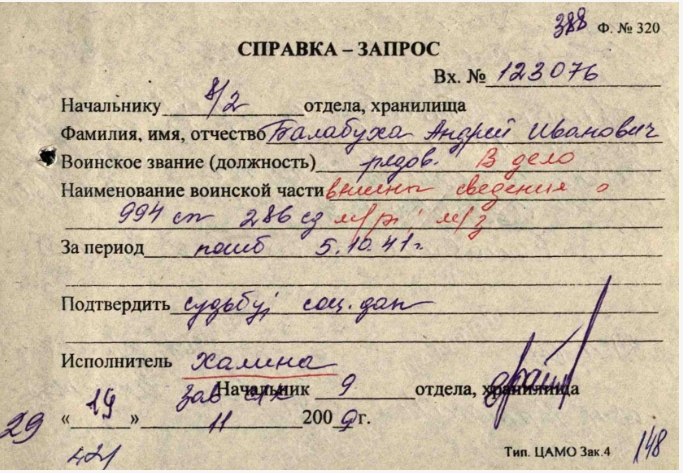 388 Ф. № 320
СПРАВКА – ЗАПРОС
Вх. № 123076
Начальнику 8/2 отдела, хранилища
Фамилия, имя, отчество Балабуха Андрей Иванович
Воинское звание (должность) рядов. В дело
Наименование воинской части внесены сведения о
994 сп 286 сд м/р; м/з
За период погиб 5.10.41г.
Подтвердить судьбу; соц. дан
Исполнитель Халина
Начальник 9 отдела, хранилища
« 19 » 11 2009г.
29
Тип. ЦАМО Зак.4 148